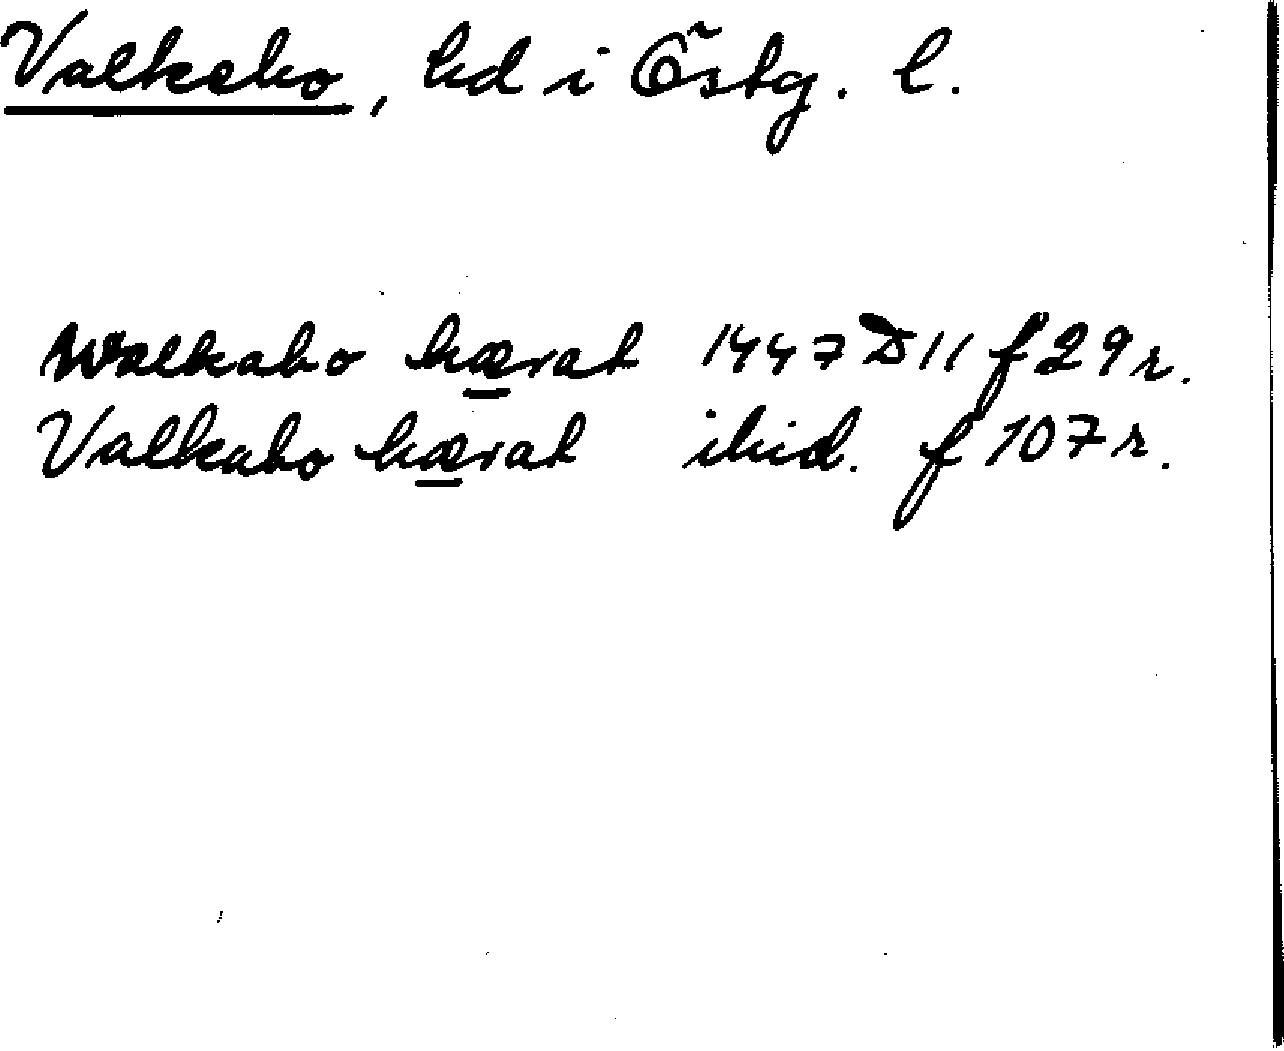 Valkebo, hd i Östg. l.
Walkabo hærat 1447 D 11 f 29 r.
Valkabo hærat ibid. f 107 r.